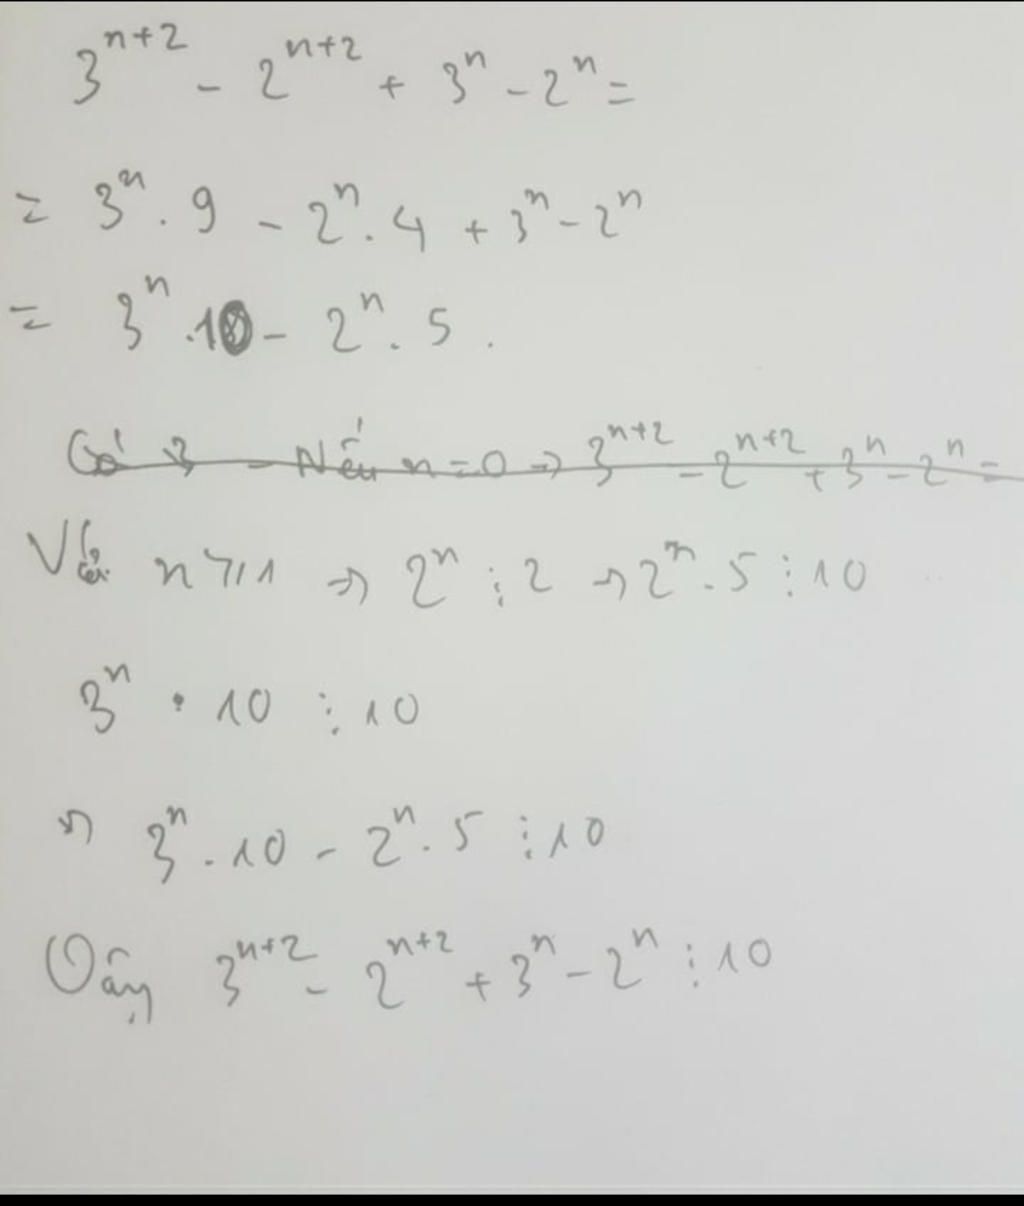 3^{n+2} - 2^{n+2} + 3^n - 2^n =
= 3^n . 9 - 2^n . 4 + 3^n - 2^n
= 3^n .10 - 2^n . 5 .
Có 3 - Nếu n = 0 → 3^{n+2} - 2^{n+2} + 3^n - 2^n =
Với n ⩾ 1 → 2^n ⋮ 2 → 2^n . 5 ⋮ 10
3^n . 10 ⋮ 10
→ 3^n . 10 - 2^n . 5 ⋮ 10
Vậy 3^{n+2} - 2^{n+2} + 3^n - 2^n ⋮ 10